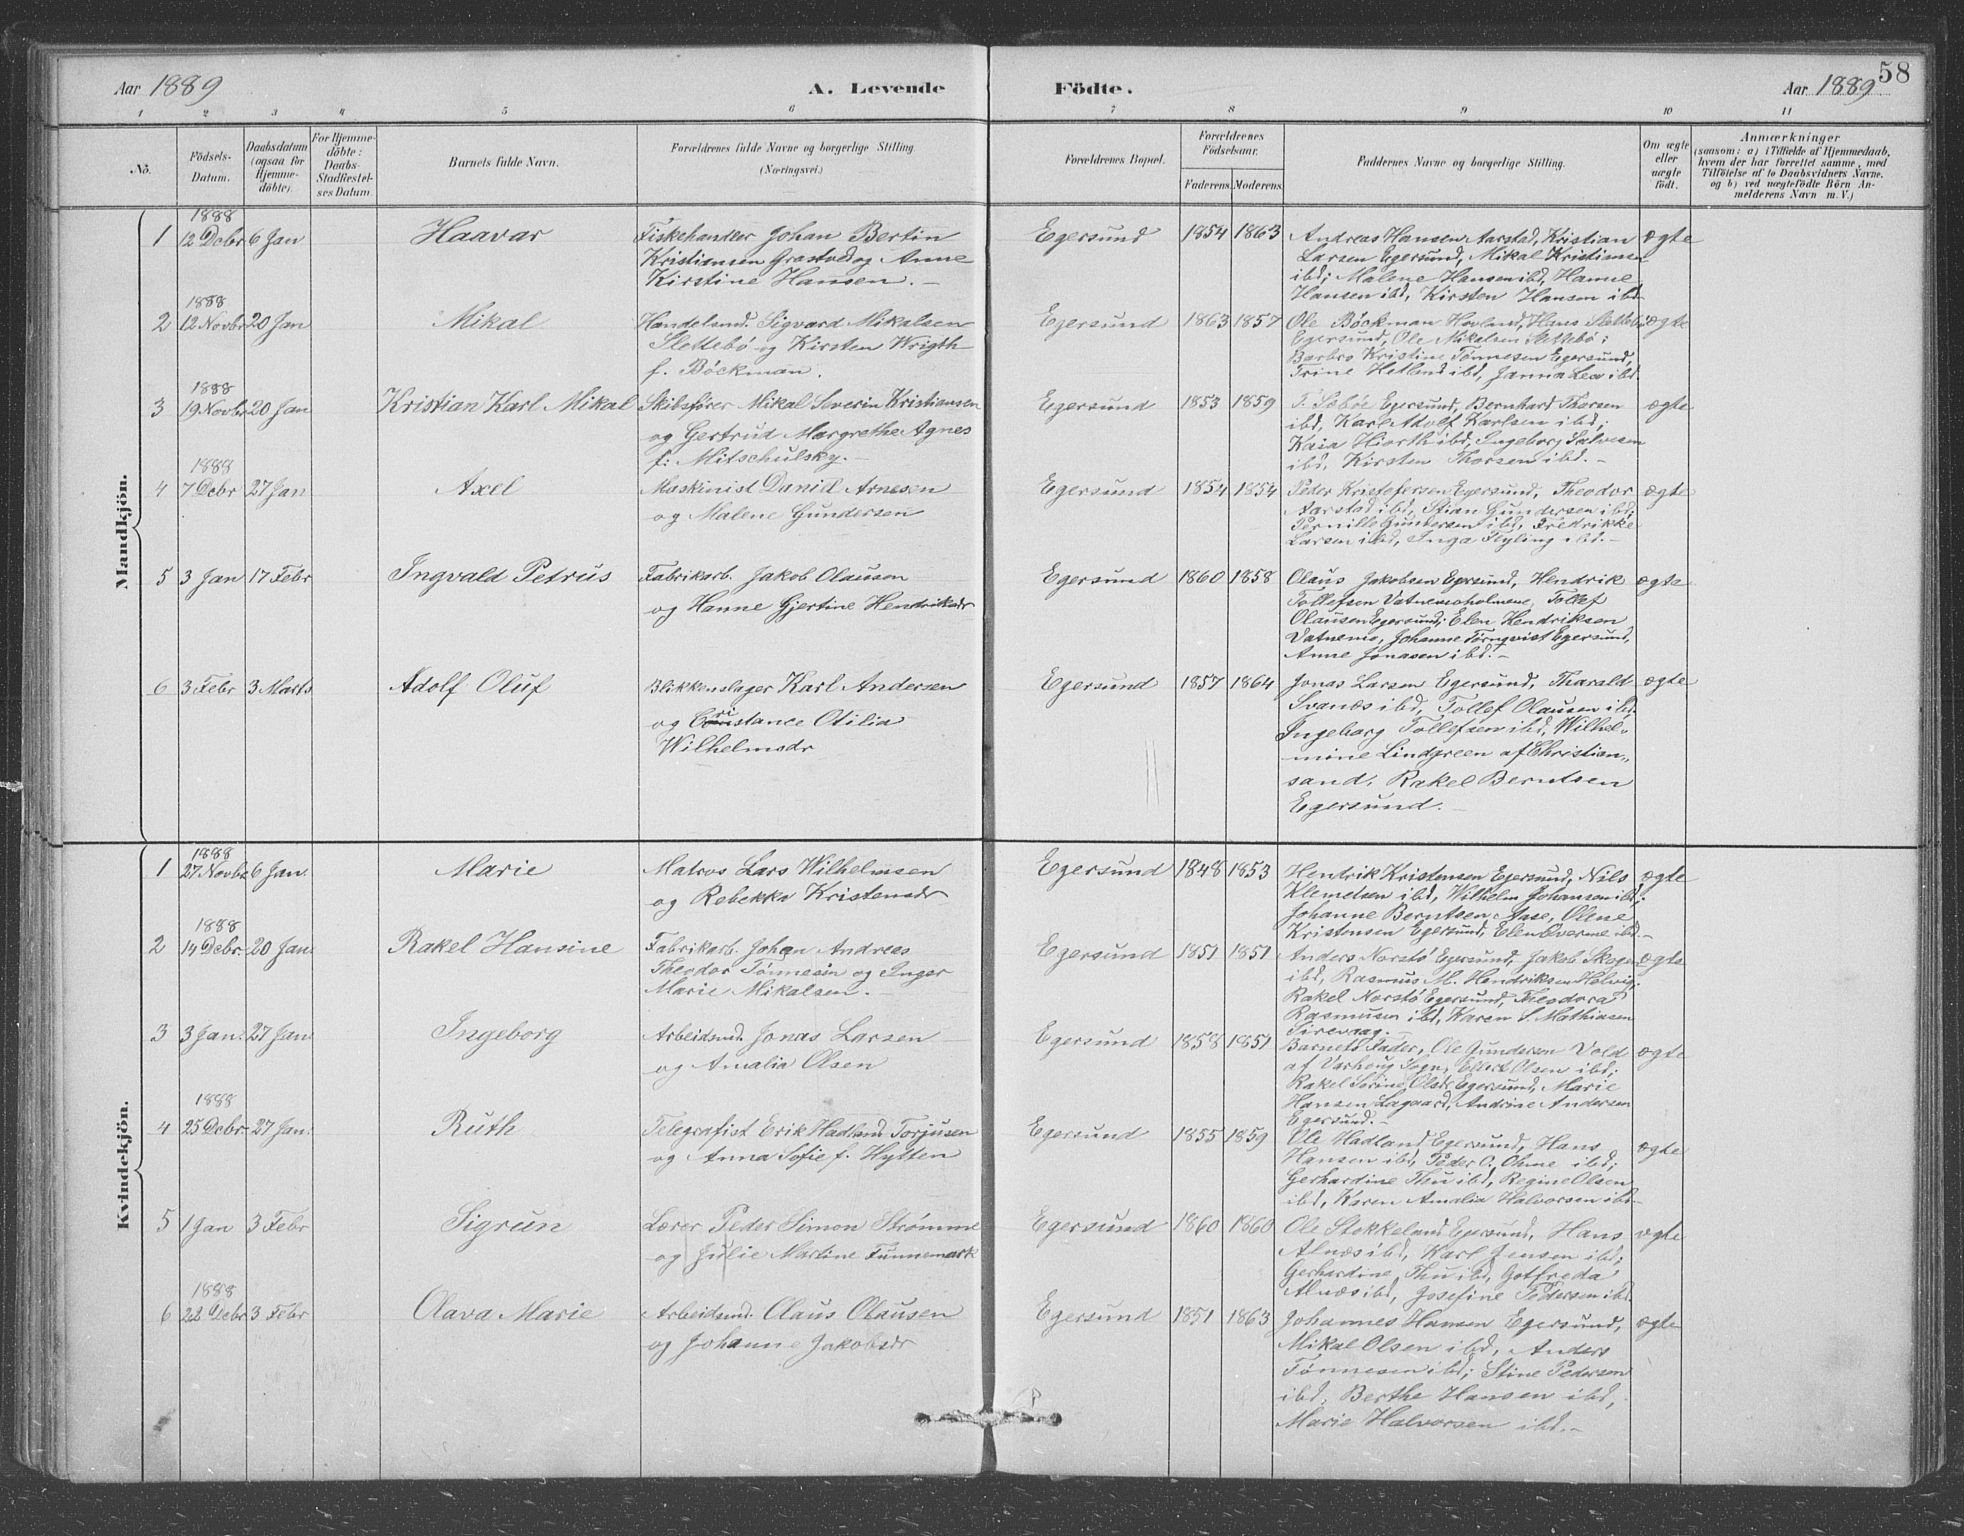 58
Aar 1889
A. Levende Födte.
Aar 1889
1 2 3 4 5 6 7 8 9 10 11
No.
Födsels-Datum.
Daabsdatum (ogsaa for Hjemme-döbte).
For Hjemme-döbte: Daabs-Stadfæstel-ses Datum.
Barnets fulde Navn.
Forældrenes fulde Navne og borgerlige Stilling.
(Næringsvei.)
Forældrenes Bopæl.
Forældrenes Födselsaar.
Faderens. Moderens.
Faddernes Navne og borgerlige Stilling.
Om ægte eller uægte födt.
Anmærkninger
(saasom: a) i Tilfælde af Hjemmedaab,
hvem der har forrettet samme, med
Tilföielse af to Daabsvidners Navne.
og b) ved uægtefödte Börn An-
melderens Navn m. V.)
Mandkjön.
1888
1 12 Debr 6 Jan Haavar Fiskehandler Johan Bertin Egersund 1854 1863 Andreas Hansen Aarstad, Kristian ægte
Kristiansen Grastved og Anne Larsen Egersund, Mikal Kristiansen
Kirstine Hansen. – ibd; Malene Hansen ibd, Hanne
Hansen ibd, Kirsten Hansen ibd
1888
2 12 Novbr 20 Jan Mikal Handelsmd. Sigvard Mikalsen Egersund 1863 1857 Ole Böckman Hovland, Hans Slettebö ægte
Slettebö og Kirsten Wrigth Egersund, Ole Mikalsen Slettebö;
f. Böckman. Barbro Kristine Tönnesen Egersund,
Trine Hetland ibd, Janna Leav ibd.
1888
3 19 Novbr 20 Jan Kristian Karl Mikal Skibsförer Mikal Severin Kristiansen Egersund 1853 1859 T. Seböe Egersund, Bernhard Thorsen ægte
og Gertrud Margrethe Agnes ibd, Karl Adolf Karlsen ibd;
f. Mitschulsky. – Kaia Hiorth ibd, Ingeborg Salvesen
ibd, Kirsten Thorsen ibd. –
1888
4 7 Debr 27 Jan Axel Maskinist Daniel Arnesen Egersund 1854 1854 Peder Kristofersen Egersund, Theodor ægte
og Malene Gundersen Aarstad ibd, Stian Gundersen ibd;
Pernille Gundersen ibd, Fredrikke
Larsen ibd, Inga Flyling ibd. –
5 3 Jan 17 Febr Ingvald Petrus Fabrikarb. Jakob Olauson Egersund 1860 1858 Olaus Jakobsen Egersund, Hendrik ægte
og Hanne Gjertine Hendriksdr Tollefsen Vatnemoholmene, Tollef
Olausen Egersund; Elen Hendriksen
Vatnemo, Johanne Törnqvist Egersund,
Anne Jonasen ibd. –
6 3 Febr 3 Marts Adolf Oluf Blikkenslager Karl Andersen Egersund 1857 1864 Jonas Larsen Egersund, Tharald ægte
og Constance Otilia Svanæs ibd, Tollef Olausen ibd.
Wilhelmsdr Ingeborg Tollefsen ibd, Wilhel-
mine Lindgreen af Christian-
sand, Rakel Berntsen
Egersund. –
Kvindekjön.
1888
1 27 Novbr 6 Jan. Marie Matros Lars Wilhelmsen Egersund 1848 1853 Hendrik Kristensen Egersund, Nils ægte
og Rebekka Kristensdr Klemetsen ibd, Wilhelm Johansen ibd;
Johanne Berntsen Aase, Olene
Kristensen Egersund, Elen Sverene ibd. –
1888
2 14 Debr. 20 Jan. Rakel Hansine Fabrikarb. Johan Andreas Egersund 1851 1851 Anders Norstö Egersund, Jakob Skogen ægte
Theodor Tönnesen og Inger ibd, Rasmus M. Hendriksen Helvig;
Marie Mikalsen. – Rakel Norstö Egersund, Theodora
Rasmusen ibd, Karen S. Mathiasen
Sirevaag. –
3 3 Jan. 27 Jan. Ingeborg Arbeidsmd. Jonas Larsen Egersund 1858 1851 Barnets Fader, Ole Gundersen Vold ægte
og Amalia Olsen af Varhoug Sogn, Ellert Olsen ibd;
Rakel Serine Olsdr Egersund, Marie
Hansen Lagaard, Andrine Andersen
Egersund. –
1888
4 25 Debr. 27 Jan. Ruth Telegrafist Erik Hadland Torjusen Egersund 1855 1859 Ole Hadland Egersund, Hans ægte
og Anna Sofie f. Hytten Hansen ibd, Peder O. Ohme ibd;
Gerhardine Thu ibd, Regine Olsen
ibd, Karen Amalia Halvorsen ibd. –
5 1 Jan 3 Febr Sigrun Lærer Peder Simon Strömme Egersund 1860 1860 Ole Stokkeland Egersund, Hans ægte
og Julie Martine Tunnemark Alnæs ibd, Karl Jensen ibd;
Gerhardine Thu ibd, Gotfreda
Alnæs ibd, Josefine Pedersen ibd.
1888
6 22 Debr 3 Febr Olava Marie Arbeidsmd. Olaus Olausen Egersund 1851 1863 Johannes Hansen Egersund, ægte
og Johanne Jakobsdr Mikal Olsen ibd, Anders
Tönnesen ibd; Stine Pedersen
ibd, Berthe Hansen ibd,
Marie Halvorsen ibd. –